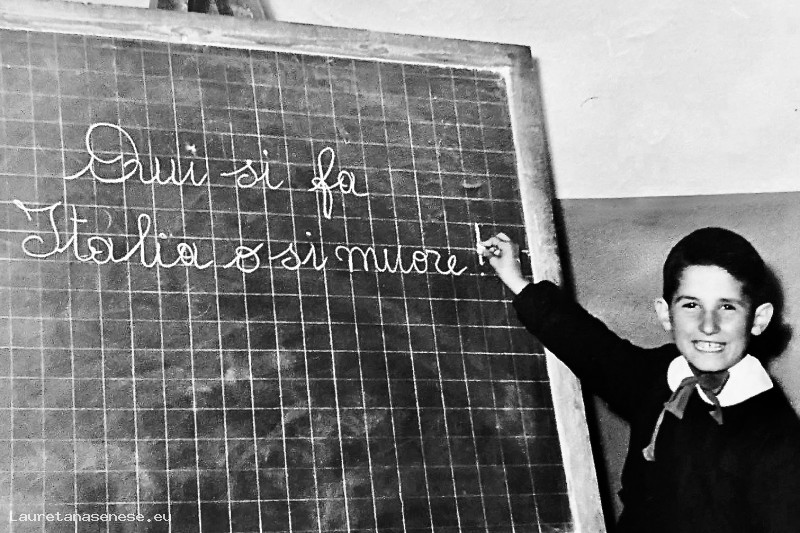 Qui si fa
Italia o si muore!
Lauretanasenese.eu